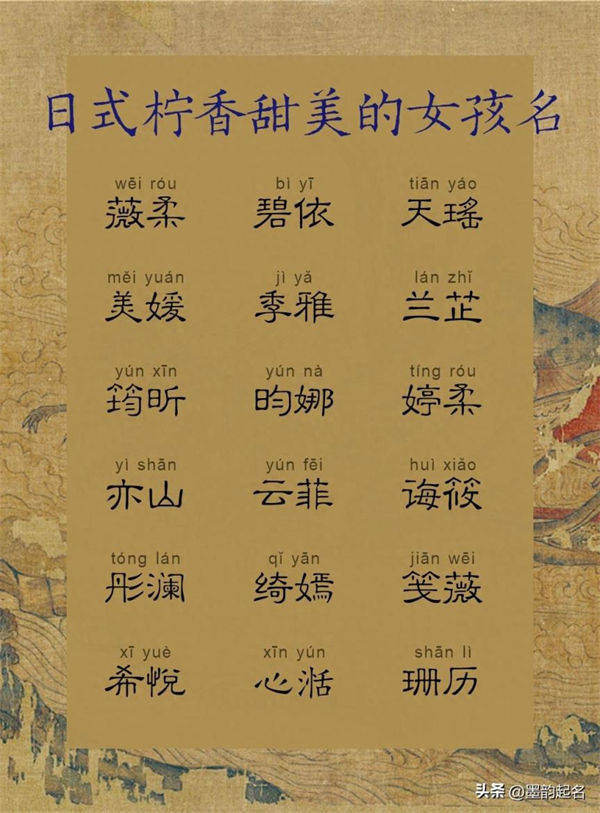 日式柠香甜美的女孩名
wēi róu bì yī tiān yáo
薇柔 碧依 天瑶
měi yuán jì yǎ lán zhǐ
美媛 季雅 兰芷
yún xīn yún nà tíng róu
筠昕 昀娜 婷柔
yì shān yún fēi huì xiǎo
亦山 云菲 诲筱
tóng lán qǐ yān jiān wēi
彤澜 绮嫣 笺薇
xī yuè xīn yún shān lì
希悦 心湉 珊历
头条 @墨韵起名